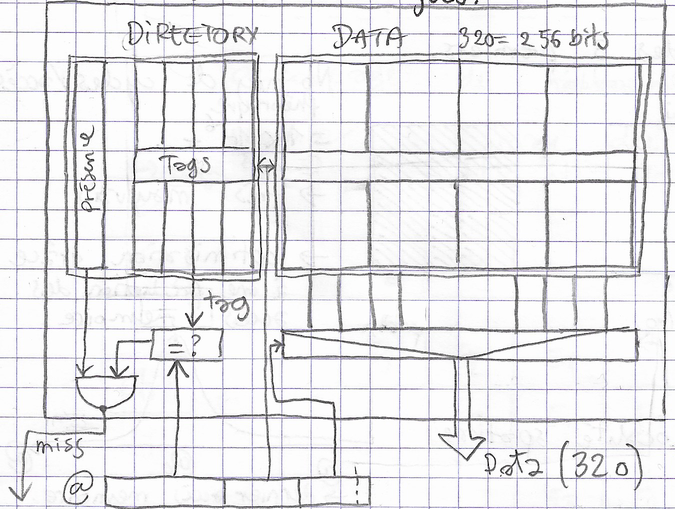 DIRECTORY DATA 320= 256 bits
présence
Tags
tag
= ?
miss
@
Data (320)